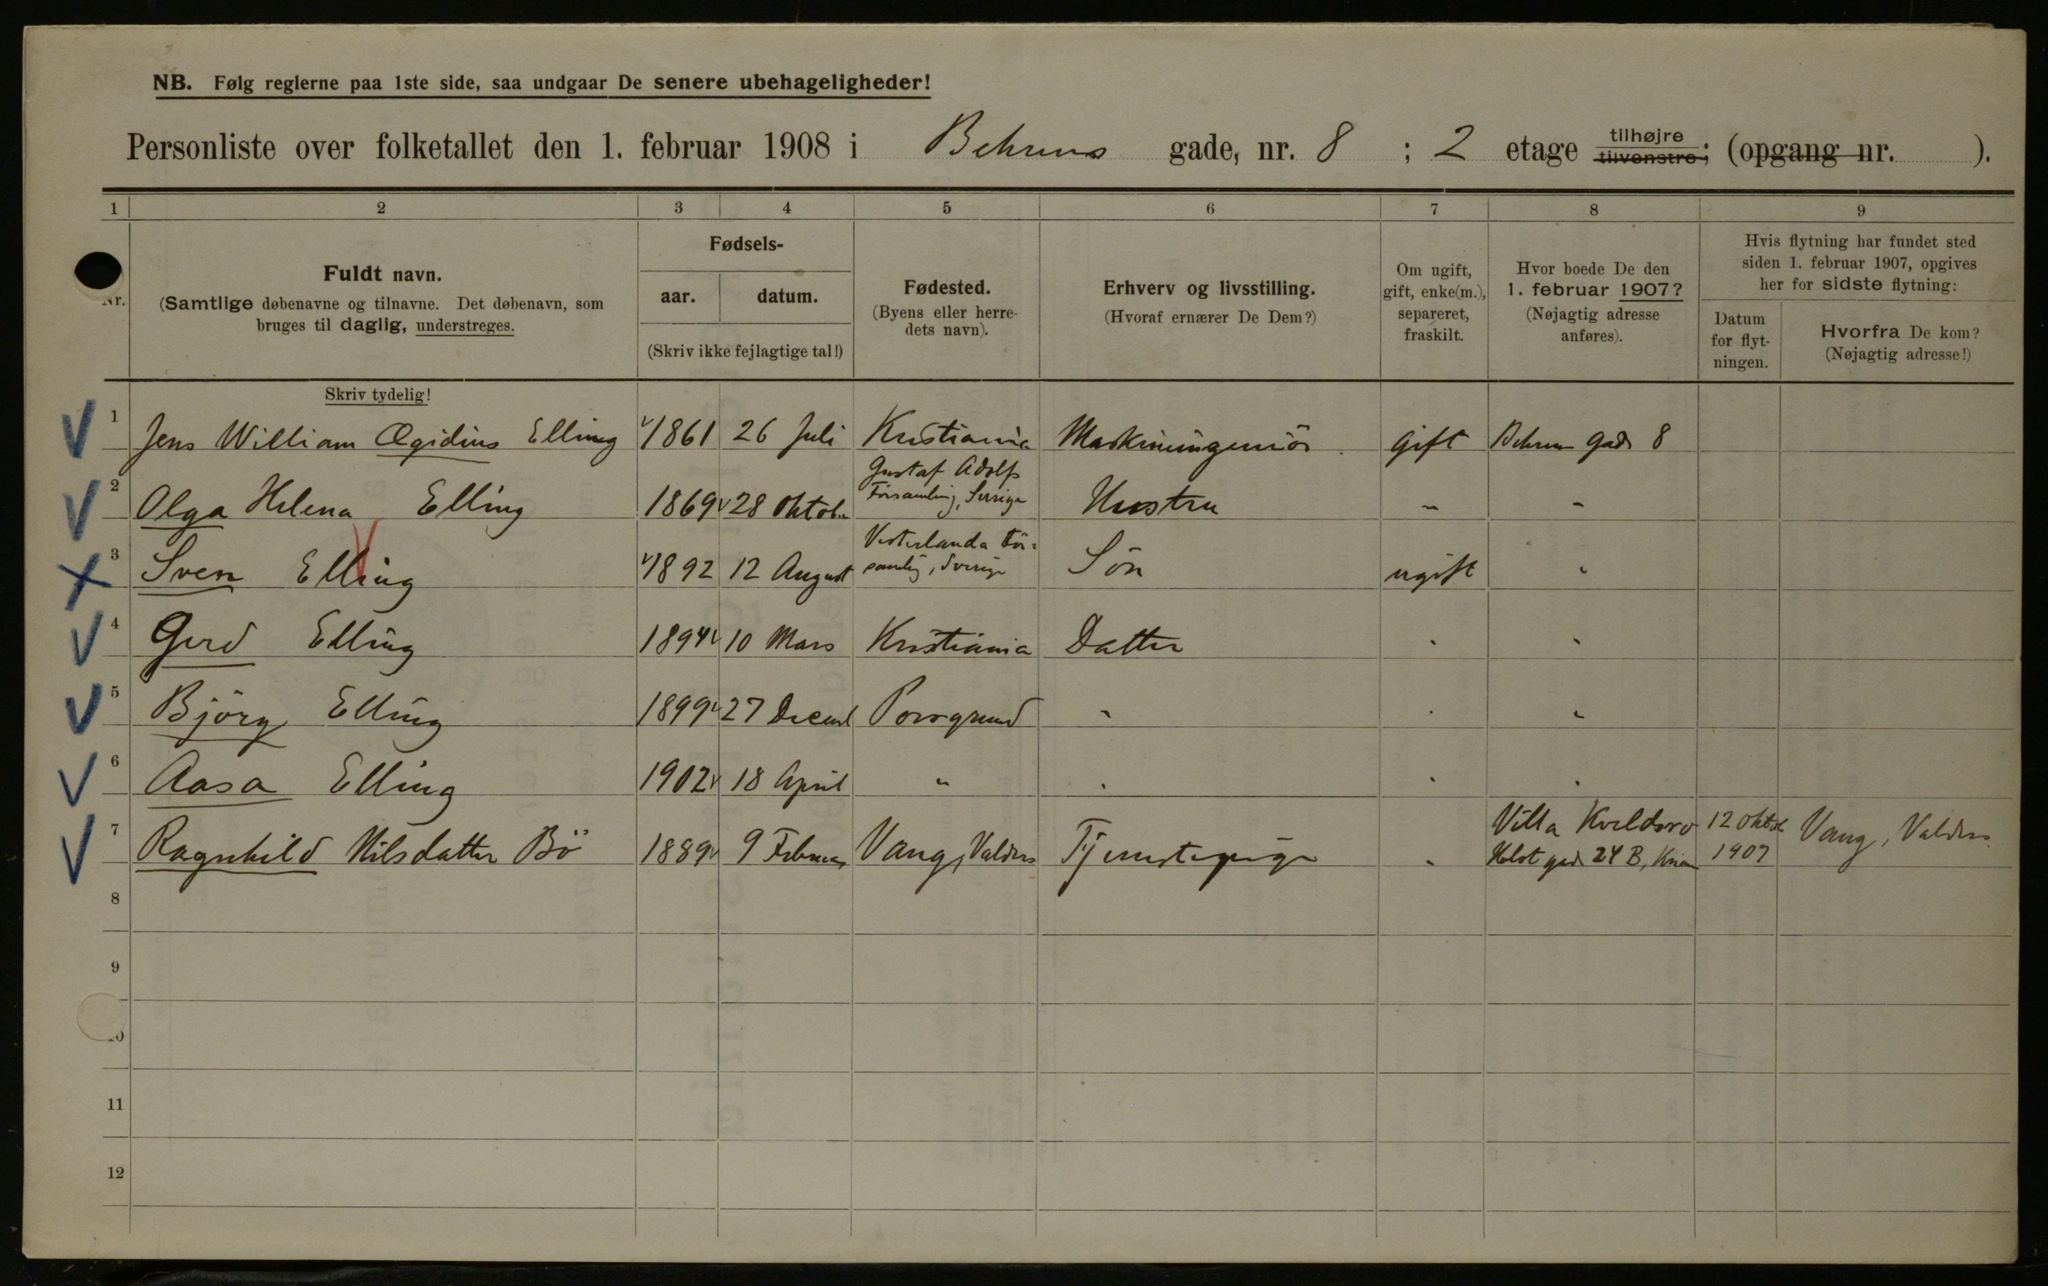 NB. Følg reglerne paa 1ste side, saa undgaar De senere ubehageligheder!
Personliste over folketallet den 1. februar 1908 i Behrens gade, nr. 8 ; 2 etage tilhøjre tilvenstre; (opgang nr. ).
1 2 3 4 5 6 7 8 9
Nr.
Fuldt navn.
(Samtlige døbenavne og tilnavne. Det døbenavn, som
bruges til daglig, understreges.
Skriv tydelig!
Fødsels-
aar. datum.
(Skriv ikke fejlagtige tal!)
Fødested.
(Byens eller herre-
dets navn).
Erhverv og livsstilling.
(Hvoraf ernærer De Dem?)
Om ugift,
gift, enke(m.),
separeret,
fraskilt.
Hvor boede De den
1. februar 1907?
(Nøjagtig adresse
anføres).
Hvis flytning har fundet sted
siden 1. februar 1907, opgives
her for sidste flytning:
Datum
for flyt-
ningen.
Hvorfra De kom?
(Nøjagtig adresse!)
1 Jens William Ægidius Elling 1861 26 Juli Kristiania Maskiningeniör gift Behrens gade 8
2 Olga Helena Elling 1869 28 Oktober Gustaf Adolfs Församling, Sverige Hustru " "
3 Sven Elling 1892 12 August Vesterlanda För-samling, Sverige Sön ugift "
4 Gerd Elling 1894 10 Mars Kristiania Datter " "
5 Björg Elling 1899 27 Decemb Porsgrund " " "
6 Aasa Elling 1902 18 April " " " "
7 Ragnhild Nilsdatter Bö 1889 9 Februar Vang, Valders Tjenestepige " Villa Kveldsro Holst gade 24 B, Kria 12 Oktob. 1907 Vang, Valders
8
9
10
11
12